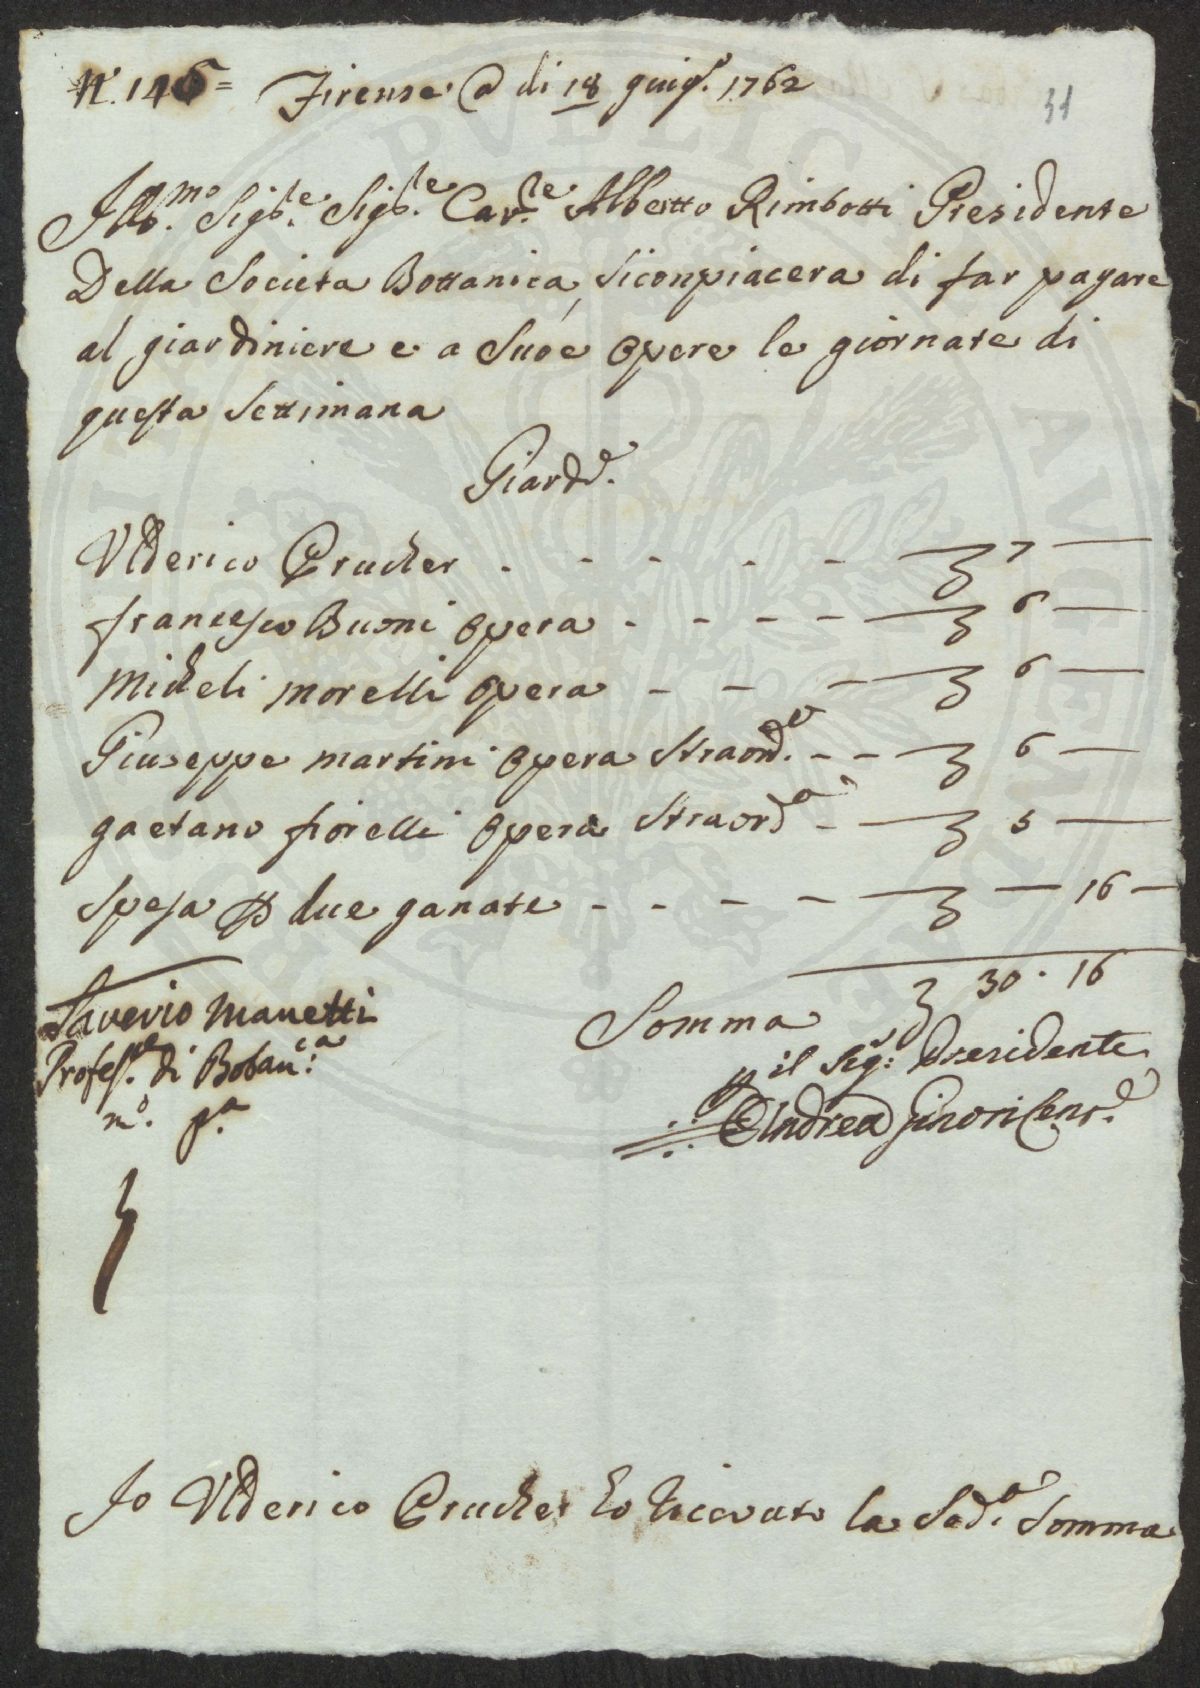 N. 146= Firense @ di 18 giug.º 1762
31
Ill.mo Sig.re Sig.re Cav.re Albertto Rimbotti Presidente
Della Societa Bottanica, si conpiacera di far pagare
al giardiniere e a Suoe Opere le giornate di
questa Settimana
Giard.e
Ulderico Prucher - - - - - 7 —
francesco Buoni Opera - - - - 6 —
Micheli morelli Opera - - - 6 —
Giuseppe martini Opera Straord.a - - 6 —
gaetano fiorelli Opera Straord.a - 5 —
Spesa p due ganate - - - - — 16 —
Somma 30 · 16
Saverio Manetti
Profes.re di Botan.ca
m.o p.a
p il Sig.r Presidente
Andrea Ginori Cens.e
Io Ulderico Prucher ho ricevuto la Sad.a Somma